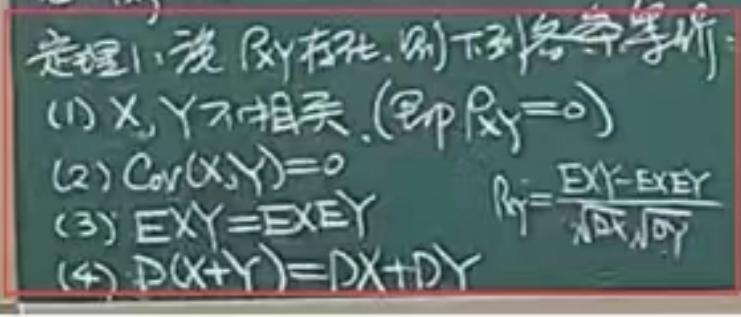 定理1:设 ρXY存在.则下列各条等价:
(1) X,Y不相关.(即ρXY=0)
(2) Cov(X,Y)=0
(3) EXY=EXEY
ρXY=(EXY-EXEY)/(√DX√DY)
(4) D(X+Y)=DX+DY